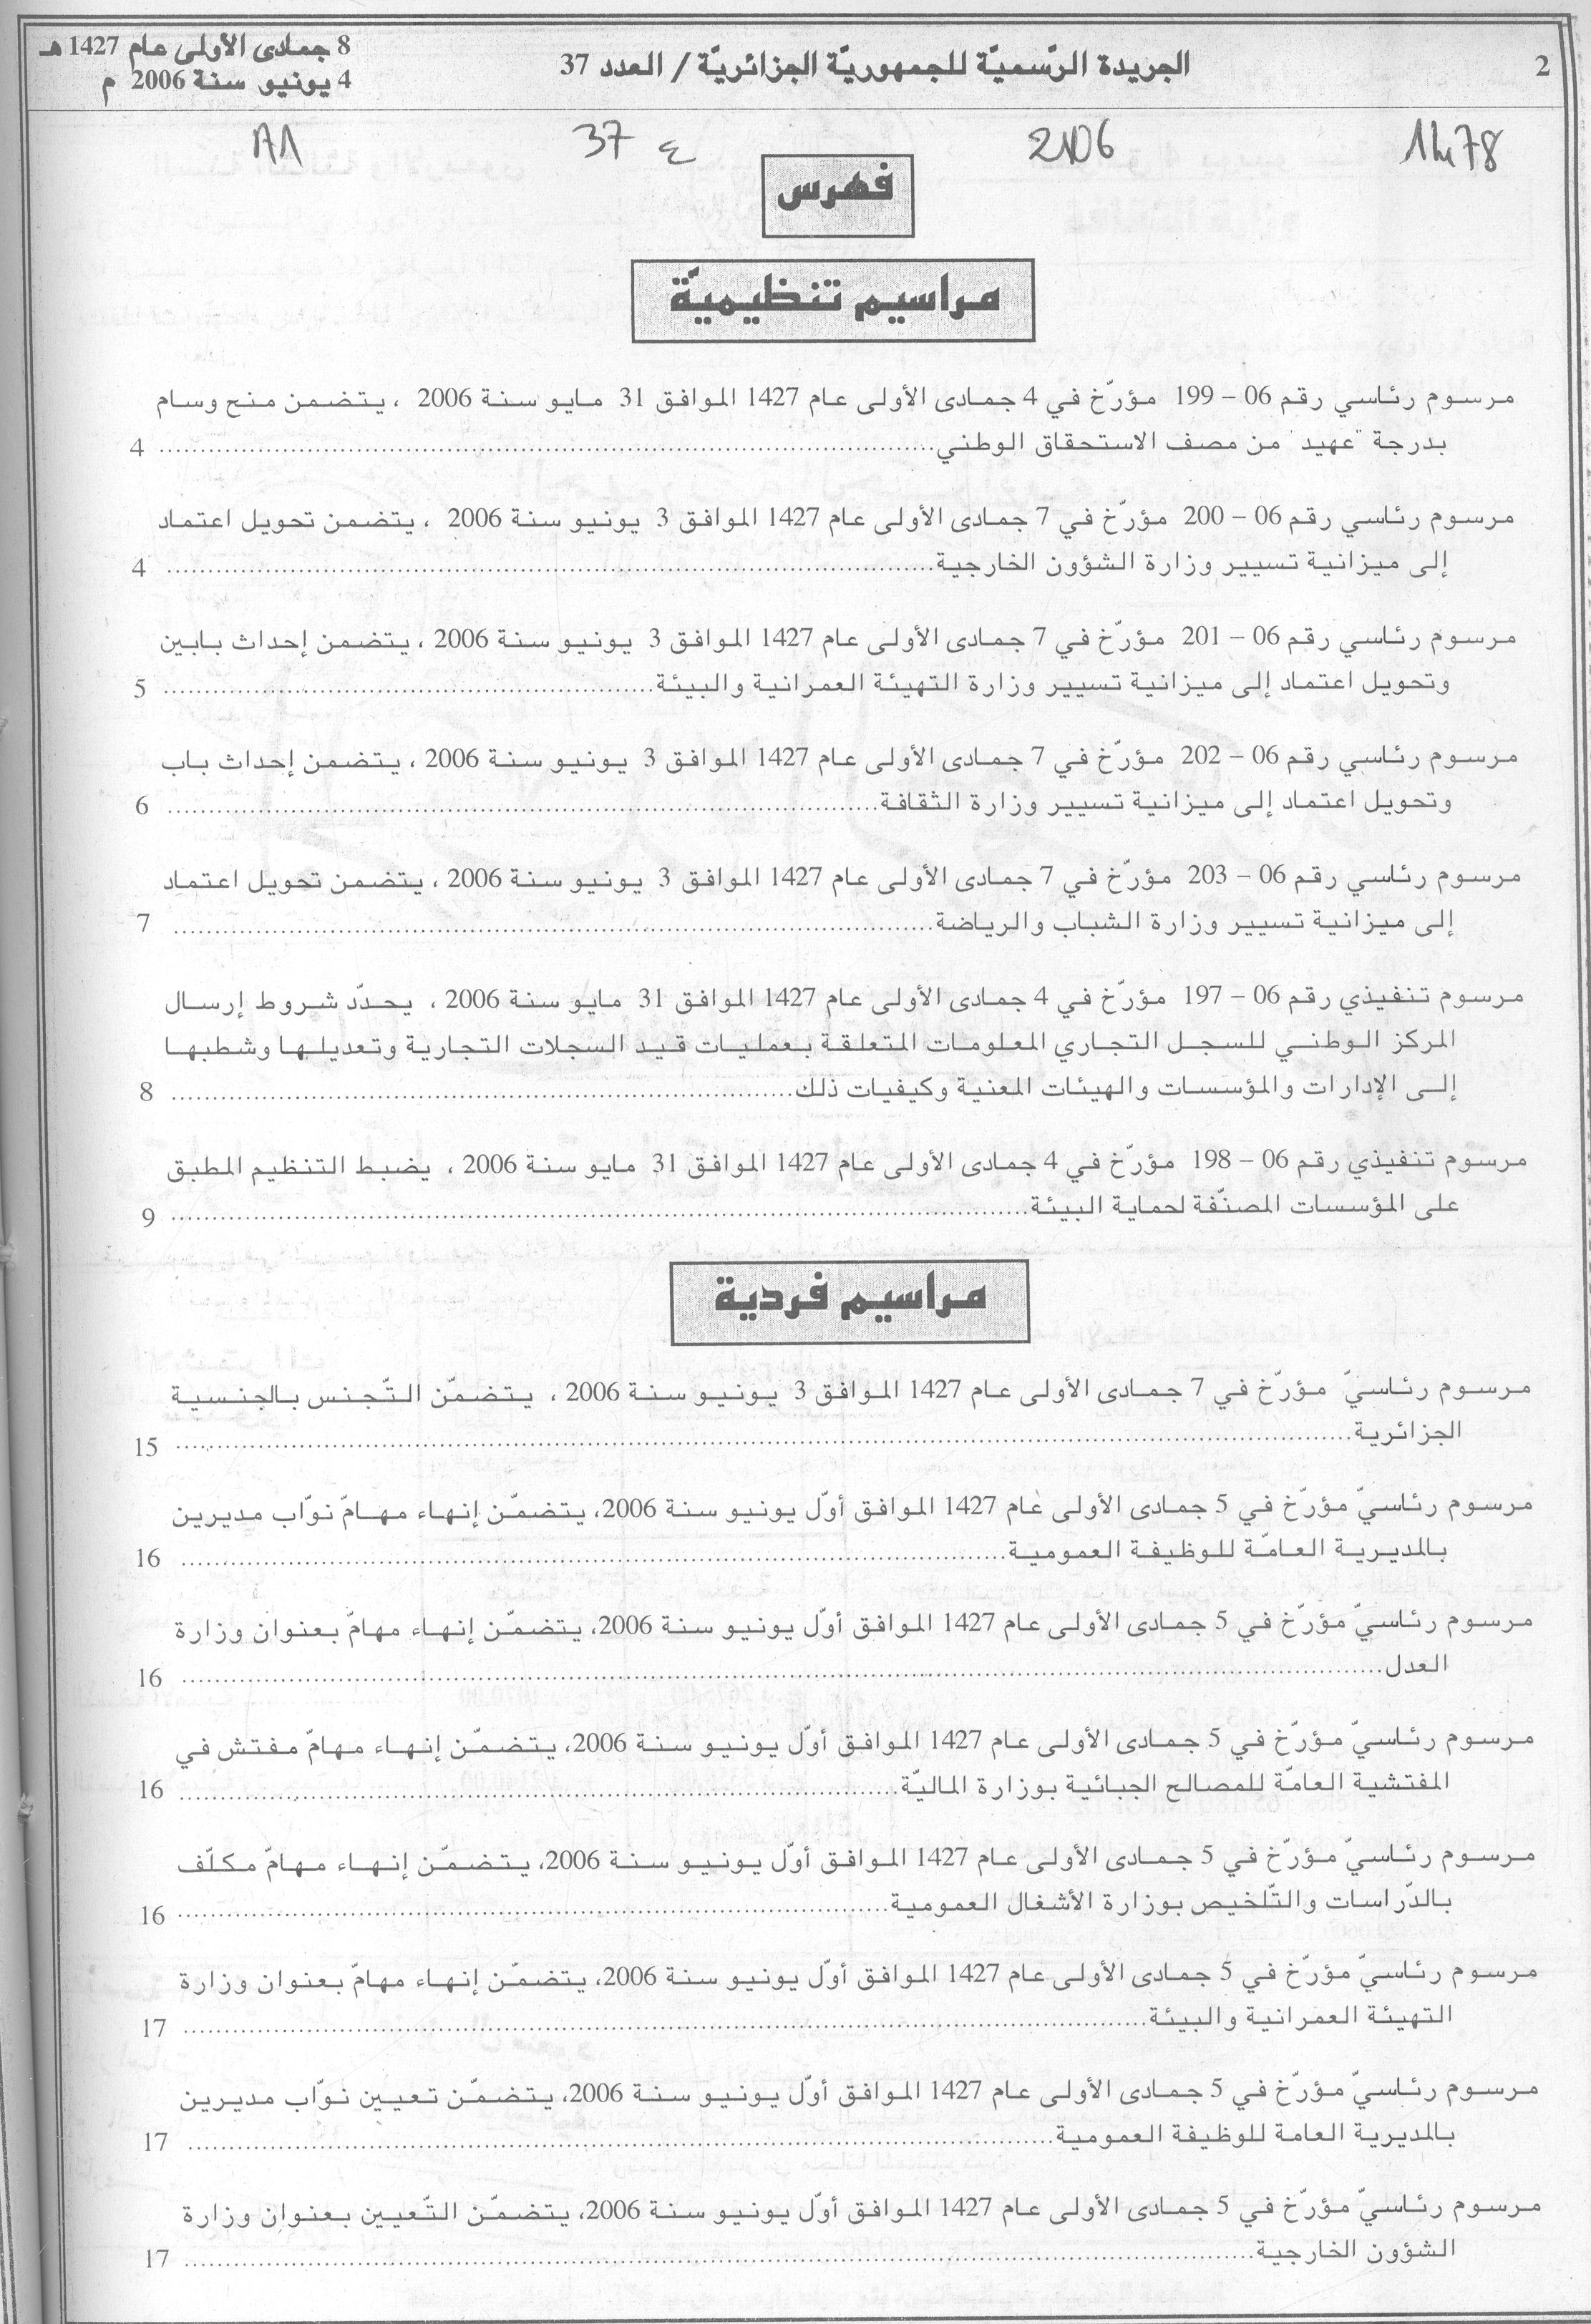 2
الجريدة الرّسميّة للجمهوريّة الجزائريّة / العدد 37
8 جمادى الأولى عام 1427 هـ
4 يونيو سنة 2006 م
37 ع
فهرس
مراسيم تنظيميّة
مرسوم رئاسي رقم 06 – 199 مؤرّخ في 4 جمادى الأولى عام 1427 الموافق 31 مايو سنة 2006 ، يتضمن منح وسام
بدرجة "عهيد" من مصف الاستحقاق الوطني.......... 4
مرسوم رئاسي رقم 06 – 200 مؤرّخ في 7 جمادى الأولى عام 1427 الموافق 3 يونيو سنة 2006 ، يتضمن تحويل اعتماد
إلى ميزانية تسيير وزارة الشؤون الخارجية.......... 4
مرسوم رئاسي رقم 06 – 201 مؤرّخ في 7 جمادى الأولى عام 1427 الموافق 3 يونيو سنة 2006 ، يتضمن إحداث بابين
وتحويل اعتماد إلى ميزانية تسيير وزارة التهيئة العمرانية والبيئة.......... 5
مرسوم رئاسي رقم 06 – 202 مؤرّخ في 7 جمادى الأولى عام 1427 الموافق 3 يونيو سنة 2006 ، يتضمن إحداث باب
وتحويل اعتماد إلى ميزانية تسيير وزارة الثقافة.......... 6
مرسوم رئاسي رقم 06 – 203 مؤرّخ في 7 جمادى الأولى عام 1427 الموافق 3 يونيو سنة 2006 ، يتضمن تحويل اعتماد
إلى ميزانية تسيير وزارة الشباب والرياضة.......... 7
مرسوم تنفيذي رقم 06 – 197 مؤرّخ في 4 جمادى الأولى عام 1427 الموافق 31 مايو سنة 2006 ، يحدّد شروط إرسال
المركز الوطني للسجل التجاري المعلومات المتعلقة بعمليات قيد السجلات التجارية وتعديلها وشطبها
إلى الإدارات والمؤسسات والهيئات المعنية وكيفيات ذلك.......... 8
مرسوم تنفيذي رقم 06 – 198 مؤرّخ في 4 جمادى الأولى عام 1427 الموافق 31 مايو سنة 2006 ، يضبط التنظيم المطبق
على المؤسسات المصنّفة لحماية البيئة.......... 9
مراسيم فردية
مرسوم رئاسيّ مؤرّخ في 7 جمادى الأولى عام 1427 الموافق 3 يونيو سنة 2006 ، يتضمّن التّجنس بالجنسية
الجزائرية.......... 15
مرسوم رئاسيّ مؤرّخ في 5 جمادى الأولى عام 1427 الموافق أوّل يونيو سنة 2006، يتضمّن إنهاء مهامّ نوّاب مديرين
بالمديرية العامّة للوظيفة العمومية.......... 16
مرسوم رئاسيّ مؤرّخ في 5 جمادى الأولى عام 1427 الموافق أوّل يونيو سنة 2006، يتضمّن إنهاء مهامّ بعنوان وزارة
العدل.......... 16
مرسوم رئاسيّ مؤرّخ في 5 جمادى الأولى عام 1427 الموافق أوّل يونيو سنة 2006، يتضمّن إنهاء مهامّ مفتش في
المفتشية العامّة للمصالح الجبائية بوزارة الماليّة.......... 16
مرسوم رئاسيّ مؤرّخ في 5 جمادى الأولى عام 1427 الموافق أوّل يونيو سنة 2006، يتضمّن إنهاء مهامّ مكلّف
بالدّراسات والتّلخيص بوزارة الأشغال العمومية.......... 16
مرسوم رئاسيّ مؤرّخ في 5 جمادى الأولى عام 1427 الموافق أوّل يونيو سنة 2006، يتضمّن إنهاء مهامّ بعنوان وزارة
التهيئة العمرانية والبيئة.......... 17
مرسوم رئاسيّ مؤرّخ في 5 جمادى الأولى عام 1427 الموافق أوّل يونيو سنة 2006، يتضمّن تعيين نوّاب مديرين
بالمديرية العامة للوظيفة العمومية.......... 17
مرسوم رئاسيّ مؤرّخ في 5 جمادى الأولى عام 1427 الموافق أوّل يونيو سنة 2006، يتضمّن التّعيين بعنوان وزارة
الشؤون الخارجية.......... 17